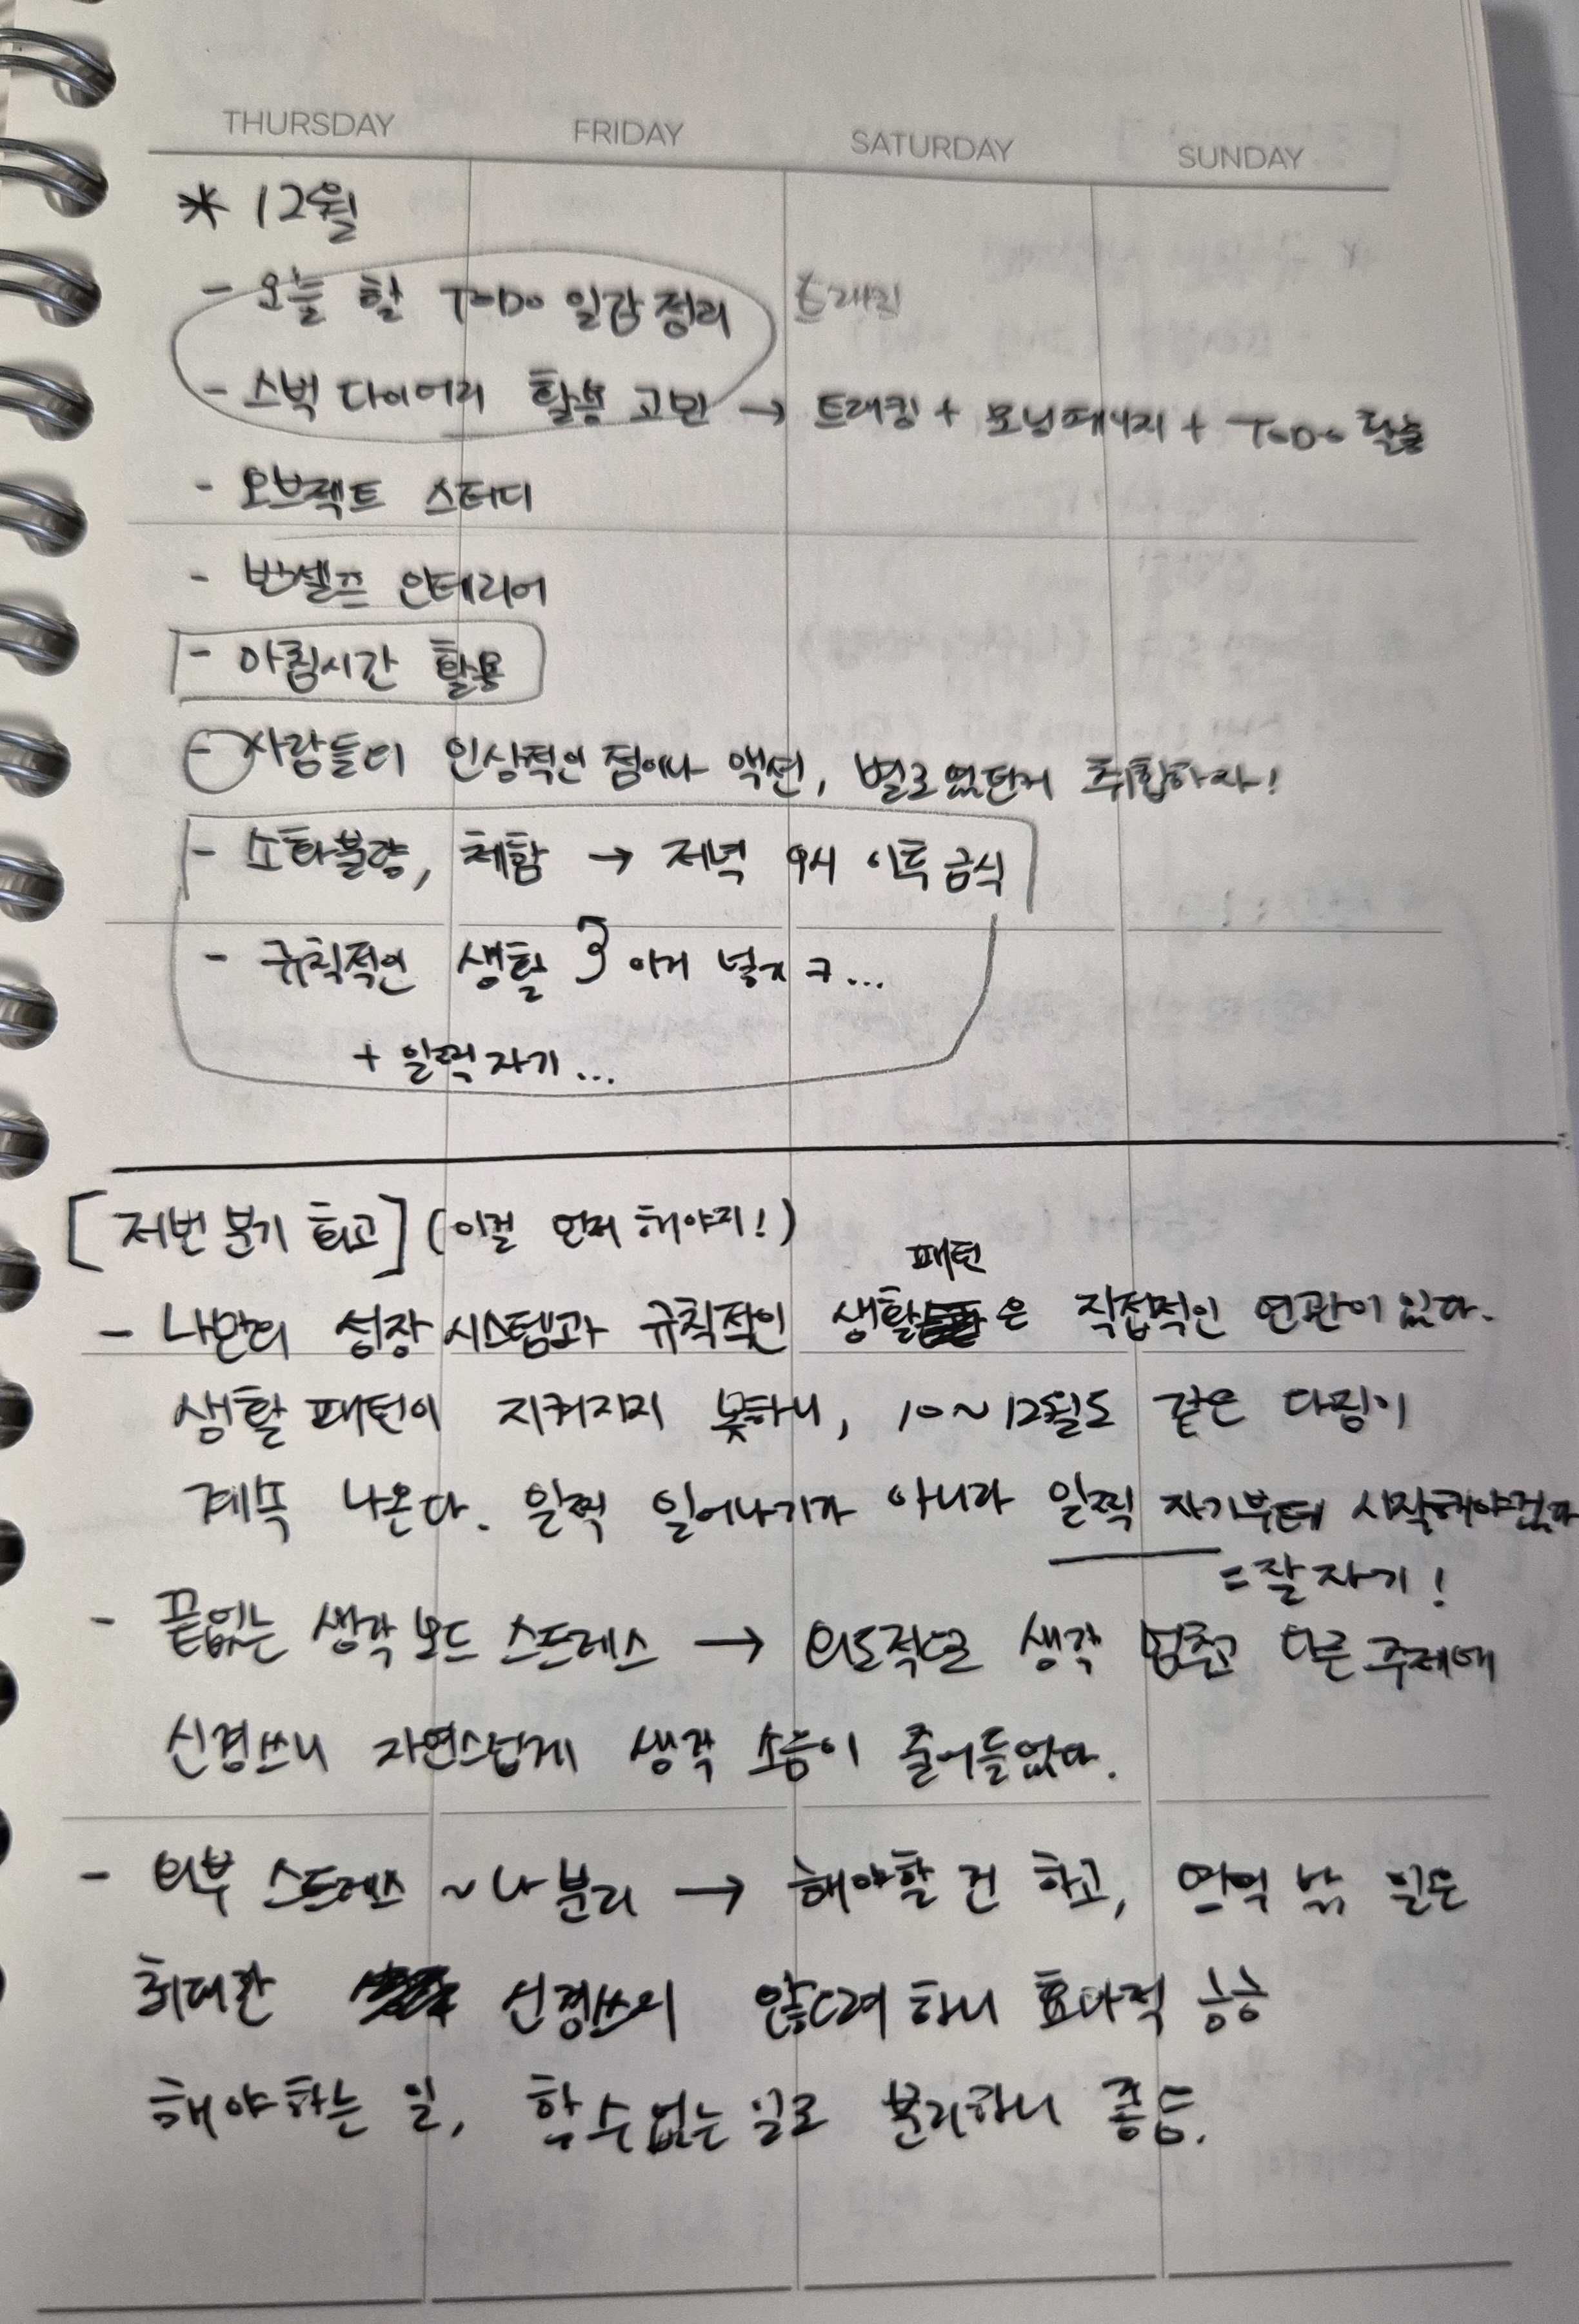 THURSDAY FRIDAY SATURDAY SUNDAY
* 12월
- 오늘 할 TODO 일감 정리 트래킹
- 스벅 다이어리 활용 고민 → 트래킹 + 모닝페이지 + TODO 활용
- 오브젝트 스터디
- 반셀프 인테리어
- 아침시간 활용
- 사람들의 인상적인 점이나 액션, 별로였던거 취합하자!
- 소화불량, 체함 → 저녁 9시 이후 금식
- 규칙적인 생활 이거 넣자 ㅋ...
+ 일찍 자기...
[저번 분기 회고] (이걸 먼저 해야지!)
패턴
- 나만의 성장 시스템과 규칙적인 생활은 직접적인 연관이 있다.
생활 패턴이 지켜지지 못하니, 10~12월도 같은 다짐이
계속 나온다. 일찍 일어나기가 아니라 일찍 자기부터 시작해야겠다
= 잘 자기!
- 끝없는 생각 모드 스트레스 → 의도적으로 생각 멈추고 다른 주제에
신경쓰니 자연스럽게 생각 소음이 줄어들었다.
- 외부 스트레스 ~ 나 분리 → 해야할 건 하고, 영역 밖 일은
최대한 신경쓰지 않으려 하니 효과적 ㅎㅎ
해야하는 일, 할 수 없는 일로 분리하니 좋음.